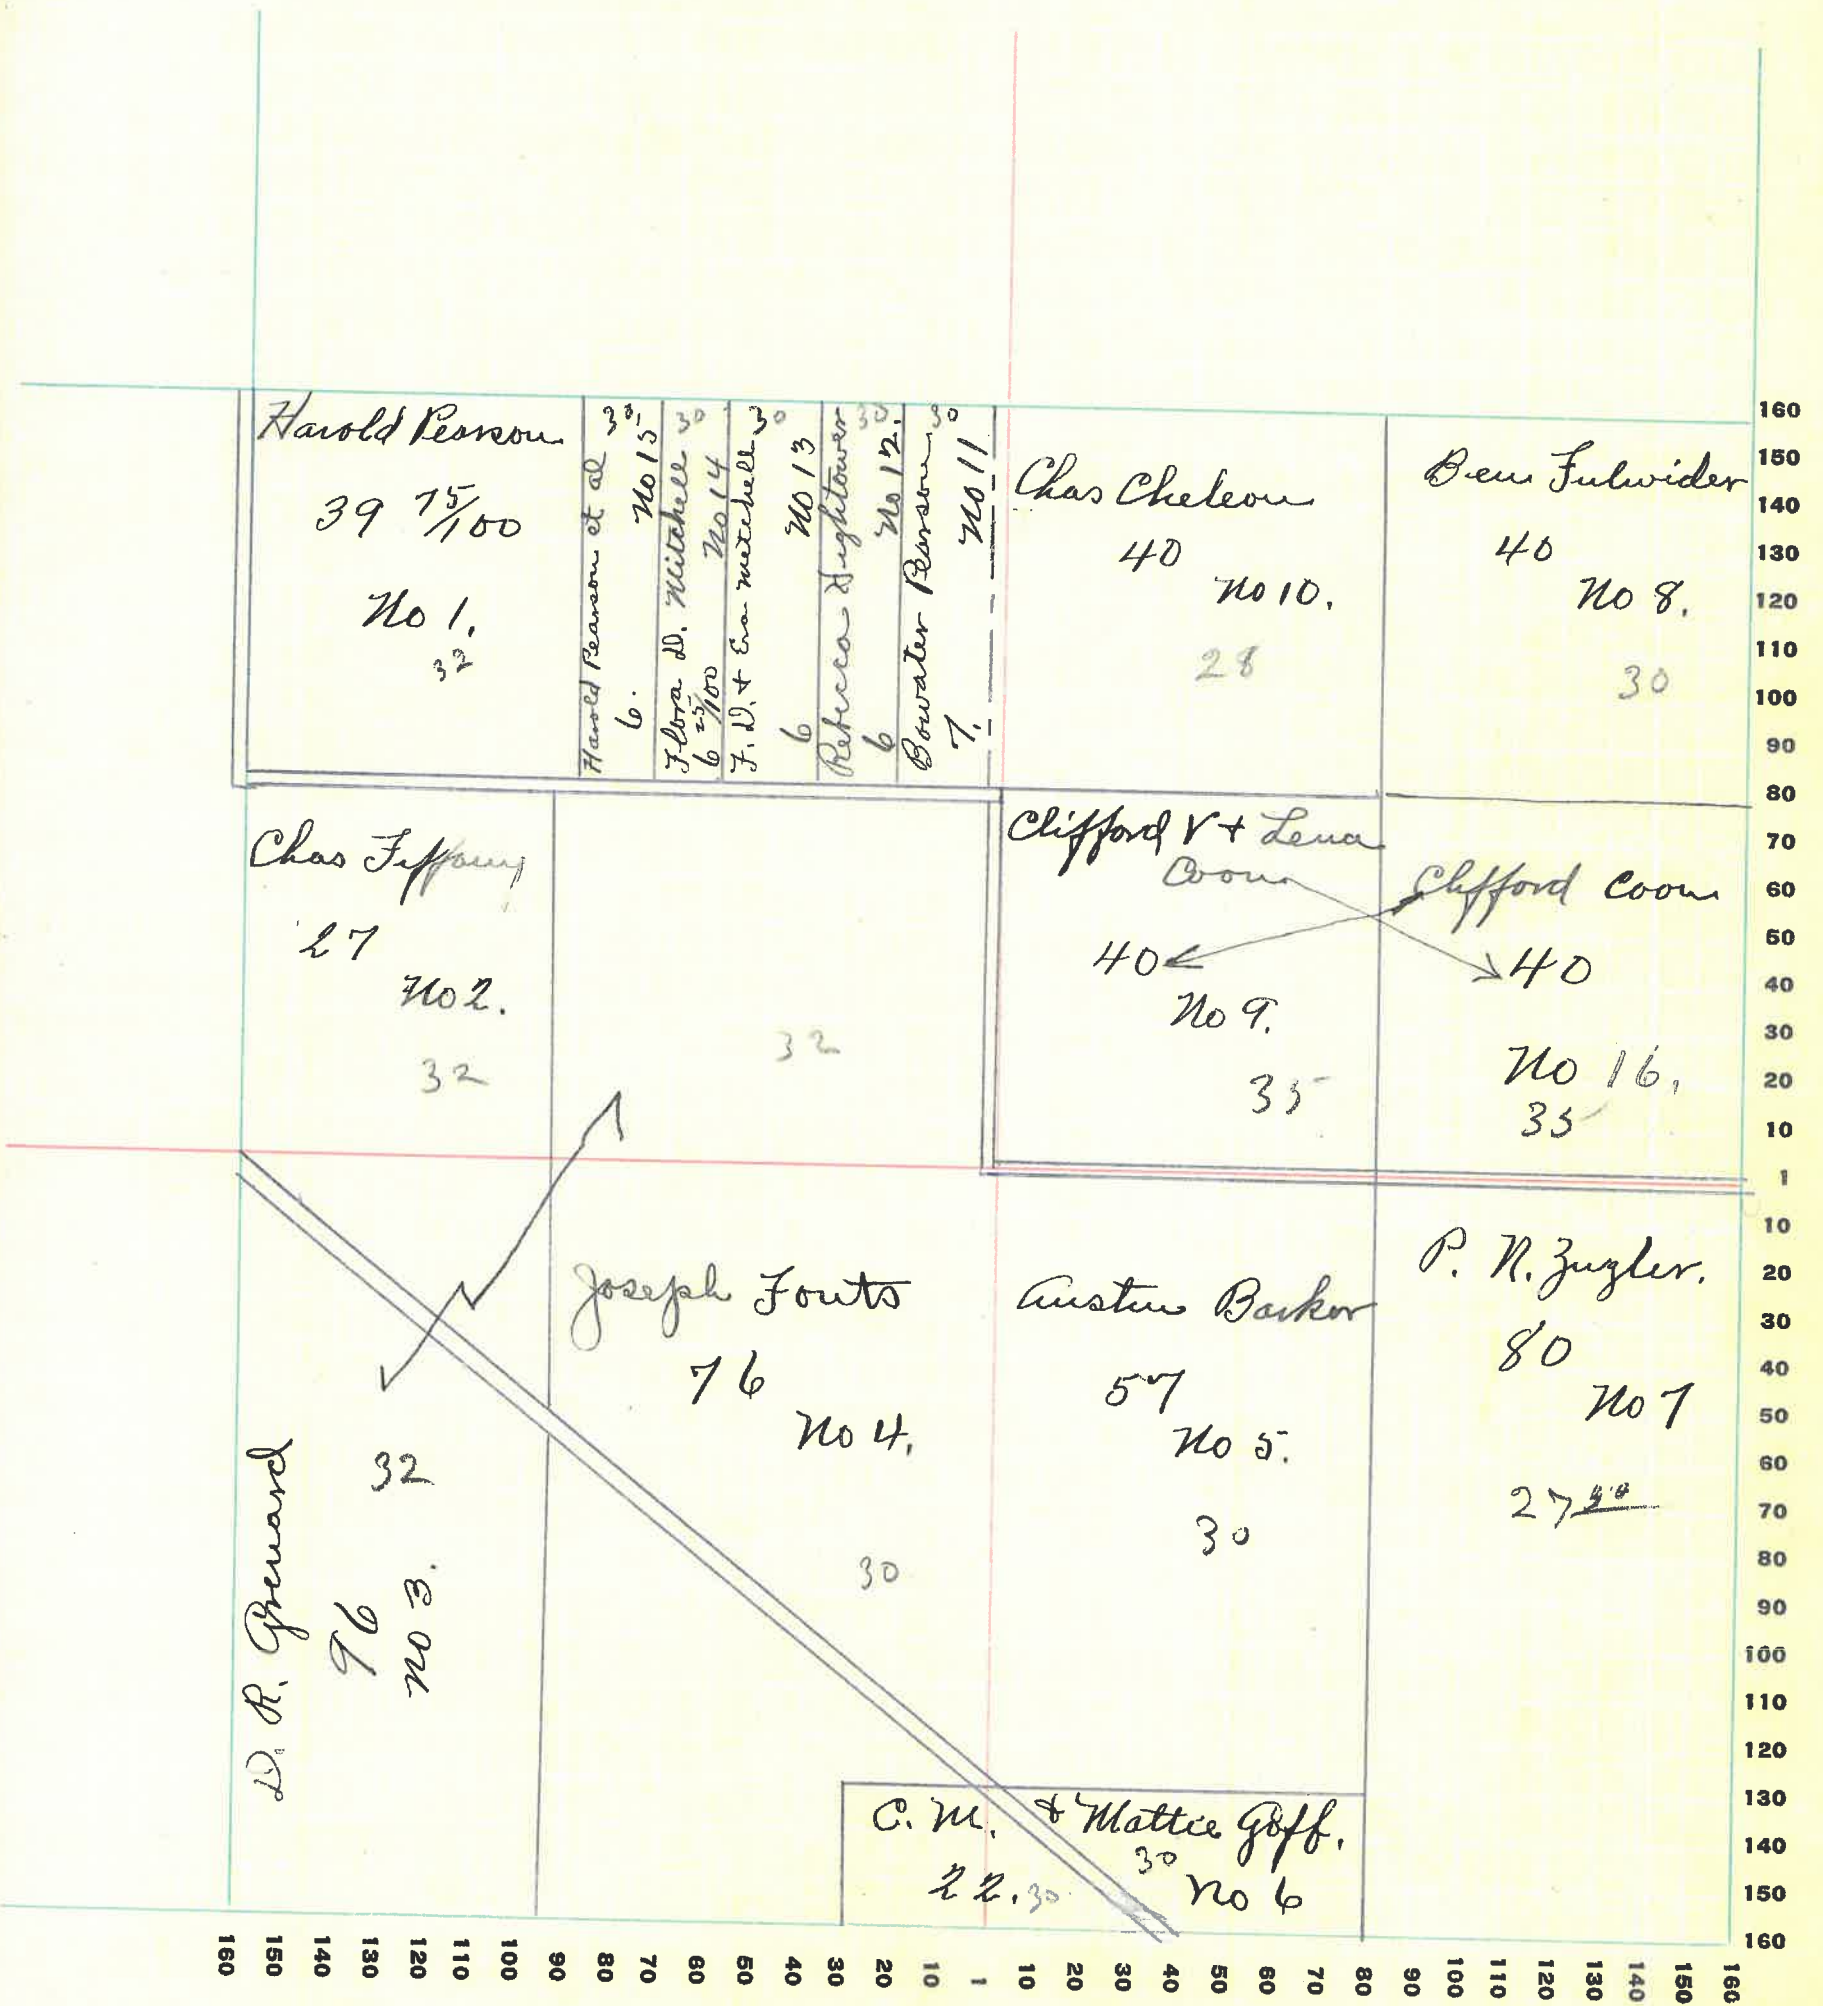 Harold Pearson
39 75/100
No 1.
32
Harold Pearson et al 30
6. No 15
Flora D. Mitchell 30
6 25/100 No 14
F. D. + Era Mitchell 30
6 No 13
Rebecca Hightower 30
6 No 12.
Bowater Pearson 30
7. No 11
Chas Cheleon
40
No 10.
28
Ben Fulwider
40
No 8.
30
Chas Tiffany
27
No 2.
32
32
Clifford V + Lena
Coon
40
No 9.
35
Clifford Coon
40
No 16.
35
D. R. Grenard
96
No 3.
32
Joseph Fouts
76
No 4.
30
Austin Barker
57
No 5.
30
P. N. Zugler.
80
No 7
27 50
C. M. & Mattie Goff.
30
22. 30 No 6
160
150
140
130
120
110
100
90
80
70
60
50
40
30
20
10
1
10
20
30
40
50
60
70
80
90
100
110
120
130
140
150
160
160 150 140 130 120 110 100 90 80 70 60 50 40 30 20 10 1 10 20 30 40 50 60 70 80 90 100 110 120 130 140 150 160